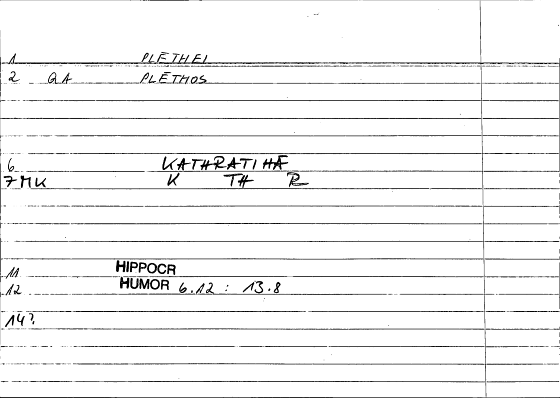 1 PLĒTHEI
2 QA PLĒTHOS
6 KATHRATIHĀ
7 MK K TH R
11 HIPPOCR
12 HUMOR 6.12 : 13.8
14?